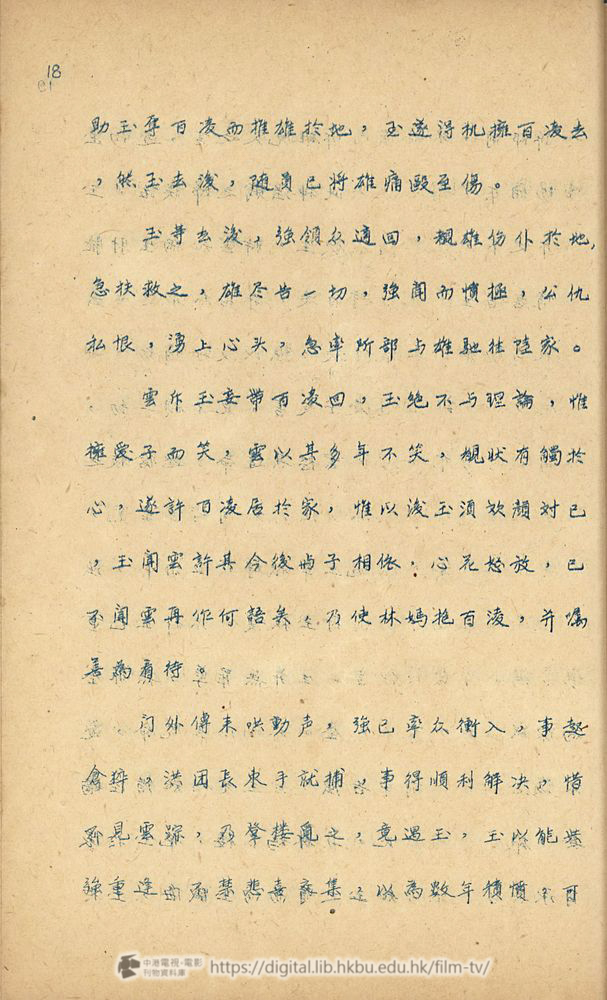 18
助玉奪百凌而推雄於地，玉遂得机擁百凌去
，然玉去後，随員已将雄痛毆至傷。
玉等去後，強領众適回，覩雄伤仆於地，
急扶救之，雄尽告一切，強闻而憤極，公仇
私恨，湧上心头，急率所部与雄馳往陸家。
雲斥玉妄帶百凌回，玉絶不与理論，惟
擁愛子而笑，雲以其多年不笑，覩狀有觸於
心，遂許百凌居於家，惟以後玉須欢顏对己
，玉闻雲許其今後与子相依，心花怒放，已
不闻雲再作何語矣，及使林媽抱百凌，并囑
善為看待。
门外傳来哄動声，強已率众衝入，事起
倉猝，洪团長束手就捕，事得順利解决，惜
不見雲踪，登楼覓之，竟遇玉，玉以能與
強重逢，不禁悲喜交集，以為數年積憤，可
中港電視·電影
刊物資料庫
https://digital.lib.hkbu.edu.hk/film-tv/